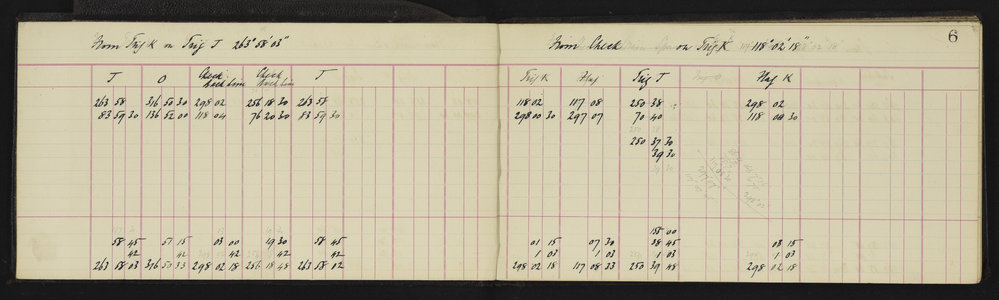 From Trig K on Trig J 263° 58' 03"
J O Check back line Check back line J
263 58 316 50 30 298 02 256 18 30 263 58
83 59 30 136 52 00 118 04 76 20 30 83 59 30
58 45 51 15 03 00 19 30 58 45
42 42 42 42 42
263 58 03 316 50 33 298 02 18 256 18 48 263 58 02
6
From Check on Trig K 118° 02' 18"
Trig K Flag Trig J Flag K
118 02 117 08 250 38 298 02
298 00 30 297 07 70 40 118 00 30
250 37 30
39 30
155 00
01 15 07 30 38 45 03 15
1 03 1 03 1 03 1 03
298 02 18 117 08 33 250 39 48 298 02 18